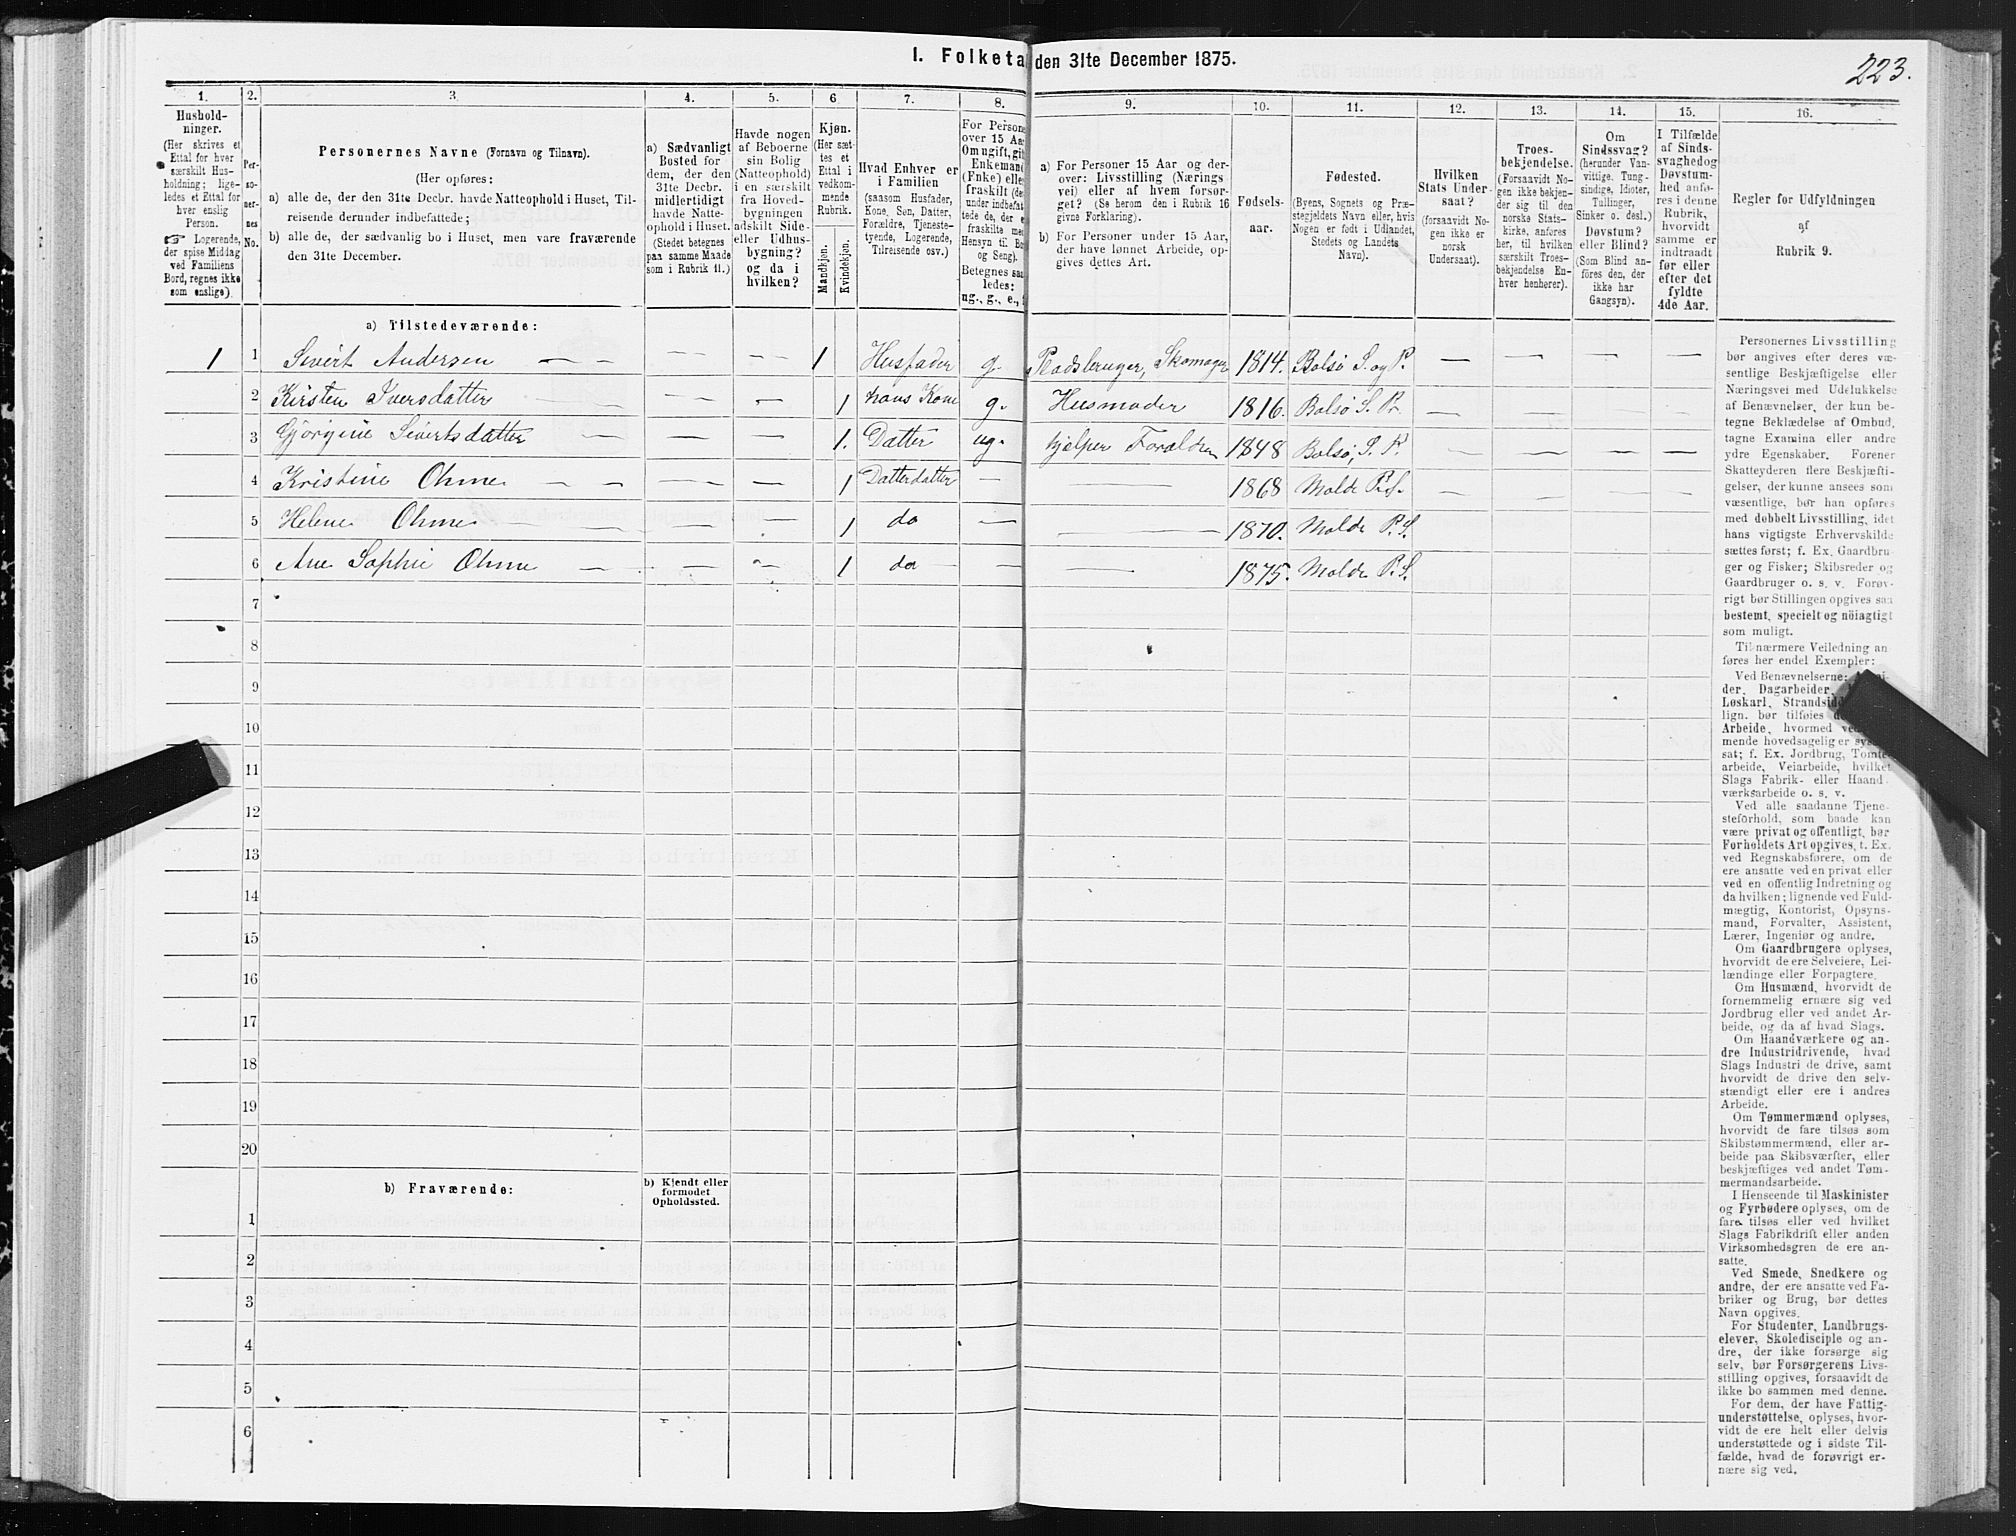 I. Folketa den 31te December 1875.
223.
1. 2. 3. 4. 5. 6 7. 8. 9. 10. 11. 12. 13. 14. 15. 16.
Hushold-
ninger.
(Her skrives et
Ettal for hver
særskilt Hus-
holdning; lige-
ledes et Ettal for
hver enslig
Person.
☞ Logerende,
der spise Middag
ved Familiens
Bord, regnes ikke
som enslige).
Per-
so-
ner-
nes
No.
Personernes Navne (Fornavn og Tilnavn).
(Her opføres:
a) alle de, der den 31te Decbr. havde Natteophold i Huset, Til-
reisende derunder indbefattede;
b) alle de, der sædvanlig bo i Huset, men vare fraværende
den 31te December.
a) Sædvanligt
Bosted for
dem, der den
31te Decbr.
midlertidigt
havde Natte-
ophold i Huset.
(Stedet betegnes
paa samme Maade
som i Rubrik 11.)
Havde nogen
af Beboerne
sin Bolig
(Natteophold)
i en særskilt
fra Hoved-
bygningen
adskilt Side-
eller Udhus-
bygning?
og da i
hvilken?
Kjøn.
(Her sæt-
tes et
Ettal i
vedkom-
mende
Rubrik.
Mandkjøn.
Kvindekjøn.
Hvad Enhver er
i Familien
(saasom Husfader,
Kone, Søn, Datter,
Forældre, Tjeneste-
tyende, Logerende,
Tilreisende osv.)
For Persone
over 15 Aa
Om ugift, gif
Enkemand
(Enke) elle
fraskilt (de
under indbefat
tede de, der e
fraskilte me
Hensyn til Bo
og Seng).
Betegnes saa
ledes:
ug., g., e.,
a) For Personer 15 Aar og der-
over: Livsstilling (Nærings
vei) eller af hvem forsør-
get? (Se herom den i Rubrik 16
givne Forklaring).
b) For Personer under 15 Aar,
der have lønnet Arbeide, op-
gives dettes Art.
Fødsels-
aar.
Fødested.
(Byens, Sognets og Præ-
stegjeldets Navn eller, hvis
Nogen er født i Udlandet,
Stedets og Landets
Navn).
Hvilken
Stats Under-
saat?
(forsaavidt No-
gen ikke er
norsk
Undersaat).
Troes-
bekjendelse.
(Forsaavidt No-
gen ikke bekjen-
der sig til den
norske Stats-
kirke, anføres
her, til hvilken
særskilt Troes-
bekjendelse En-
hver henhører).
Om
Sindssvag?
(herunder Van-
vittige, Tung-
sindige, Idioter,
Tullinger,
Sinker o. desl.)
Døvstum?
eller Blind?
(Som Blind an-
føres den, der
ikke har
Gangsyn).
I Tilfælde
af Sinds-
svaghed og
Døvstum-
hed anfø-
res i denne
Rubrik,
hvorvidt
samme er
indtraadt
før eller
efter det
fyldte
4de Aar.
Regler for Udfyldningen
af
Rubrik 9.
a) Tilstedeværende:
1 1 Sivert Andersen — — — — — 1 Husfader g. Pladsbruger, Skomager 1814. Bolsø S. og P. — — — —
2 Kirsten Iversdatter — — — — 1 hans Kone g. Husmoder 1816. Bolsø S. Pr. — — — —
3 Gjørgine Sivertsdatter — — — — 1. Datter ug. hjelper Forældren 1848 Bolsø, S. P. — — — —
4 Kristine Ohme — — — — 1 Datterdatter — — 1868 Molde P.S. — — — —
5 Helene Ohme — — — — 1 do — — 1870. Molde P.S.
6 Ane Sophie Ohme — — — 1 do — — — 1875. Molde P.S.
7
8
9
10
11
12
13
14
15
16
17
18
19
20
b) Fraværende:
b) Kjendt eller
formodet
Opholdssted.
1
2
3
4
5
6
Personernes Livsstilling
bør angives efter deres væ-
sentlige Beskjæftigelse eller
Næringsvei med Udelukkelse
af Benævnelser, der kun be-
tegne Beklædelse af Ombud,
tagne Examina eller andre
ydre Egenskaber. Forener
Skatteyderen flere Beskjæfti-
gelser, der kunne ansees som
væsentlige, bør han opføres
med dobbelt Livsstilling, idet
hans vigtigste Erhvervskilde
sættes først; f. Ex. Gaardbru-
ger og Fisker; Skibsreder og
Gaardbruger o. s. v. Forøv-
rigt bør Stillingen opgives saa
bestemt, specielt og nöiagtigt
som muligt.
Til nærmere Veiledning an
føres her endel Exempler:
Ved Benævnelserne:
der, Dagarbeider,
Løskarl, Strandsidd
lign. bør tilføies
Arbeide, hvormed
mende hovedsagelig er
sat; f. Ex. Jordbrug, Tomte-
arbeide, Veiarbeide, hvilket
Slags Fabrik- eller Haand
værksarbeide o. s. v.
Ved alle saadanne Tjene-
steforhold, som baade kan
være privat og offentligt, bør
Forholdets Art opgives, f. Ex.
ved Regnskabsførere, om de
ere ansatte ved en privat eller
ved en offentlig Indretning og
da hvilken; lignende ved Fuld-
mægtig, Kontorist, Opsyns-
mand, Forvalter, Assistent,
Lærer, Ingeniør og andre.
Om Gaardbrugere oplyses,
hvorvidt de ere Selveiere, Lei-
lændinge eller Forpagtere.
Om Husmænd, hvorvidt de
fornemmelig ernære sig ved
Jordbrug eller ved andet Ar-
beide, og da af hvad Slags.
Om Haandværkere og an-
dre Industridrivende, hvad
Slags Industri de drive, samt
hvorvidt de drive den selv-
stændigt eller ere i andres
Arbeide.
Om Tømmermænd oplyses,
hvorvidt de fare tilsøs som
Skibstømmermænd, eller ar-
beide paa Skibsværfter, eller
beskjæftiges ved andet Tøm-
mermandsarbeide.
I Henseende til Maskinister
og Fyrbødere oplyses, om de
fare tilsøs eller ved hvilket
Slags Fabrikdrift eller anden
Virksomhedsgren de ere an-
satte.
Ved Smede, Snedkere og
andre, der ere ansatte ved Fa-
briker og Brug, bør dettes
Navn opgives.
For Studenter, Landbrugs-
elever, Skoledisciple og an-
dre, der ikke forsørge sig
selv, bør Forsørgerens Livs-
stilling opgives, forsaavidt de
ikke bo sammen med denne.
For dem, der have Fattig-
understøttelse, oplyses, hvor-
vidt de ere helt eller delvis
understøttede og i sidste Til-
fælde, hvad de forøvrigt er-
nære sig ved.